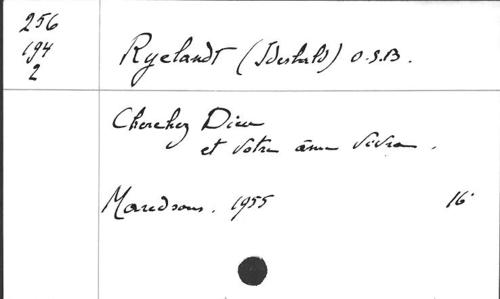 256
194
2
Ryelandt (Idesbald) O.S.B.
Cherchez Dieu
et votre âme vivra.
Maredsous. 1955
16°